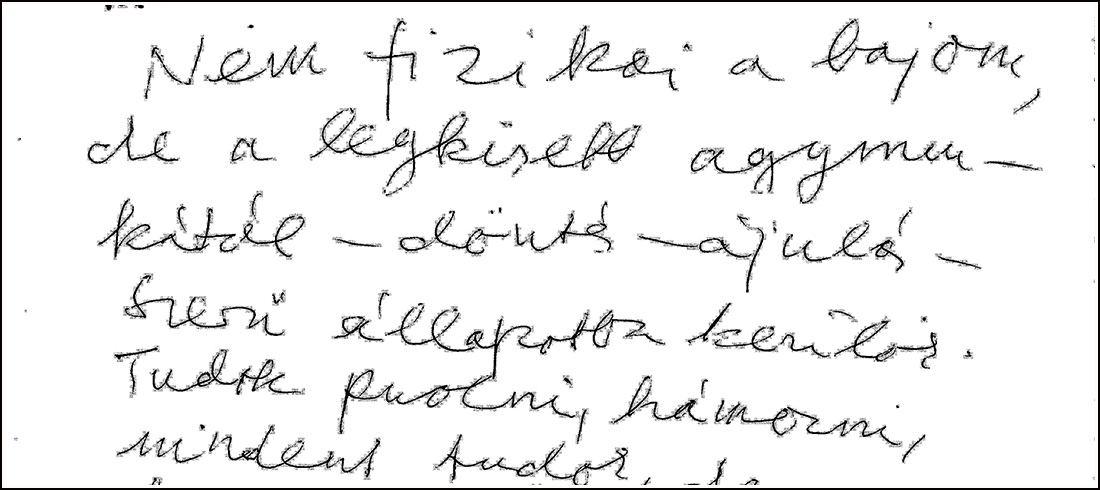 Nem fizikai a bajom,
de a legkisebb agymun-
kától – döntés – ájulás-
szerű állapotba kerülök.
Tudok pucolni, hámozni,
mindent tudok, de